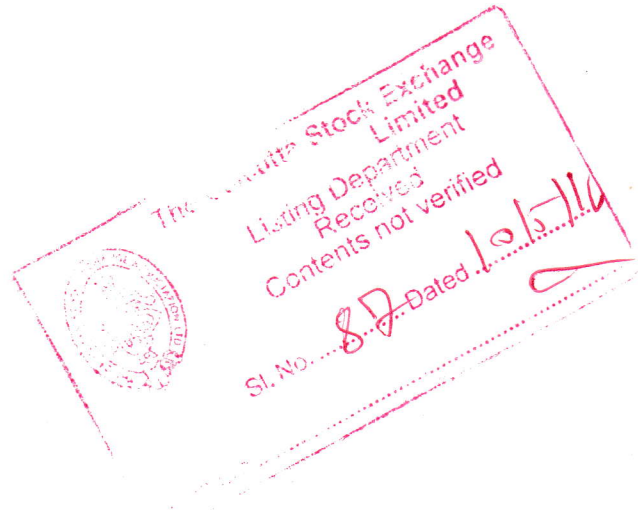 The Calcutta Stock Exchange
Limited
Listing Department
Received
Contents not verified
Sl. No. 87 Dated 10/5/